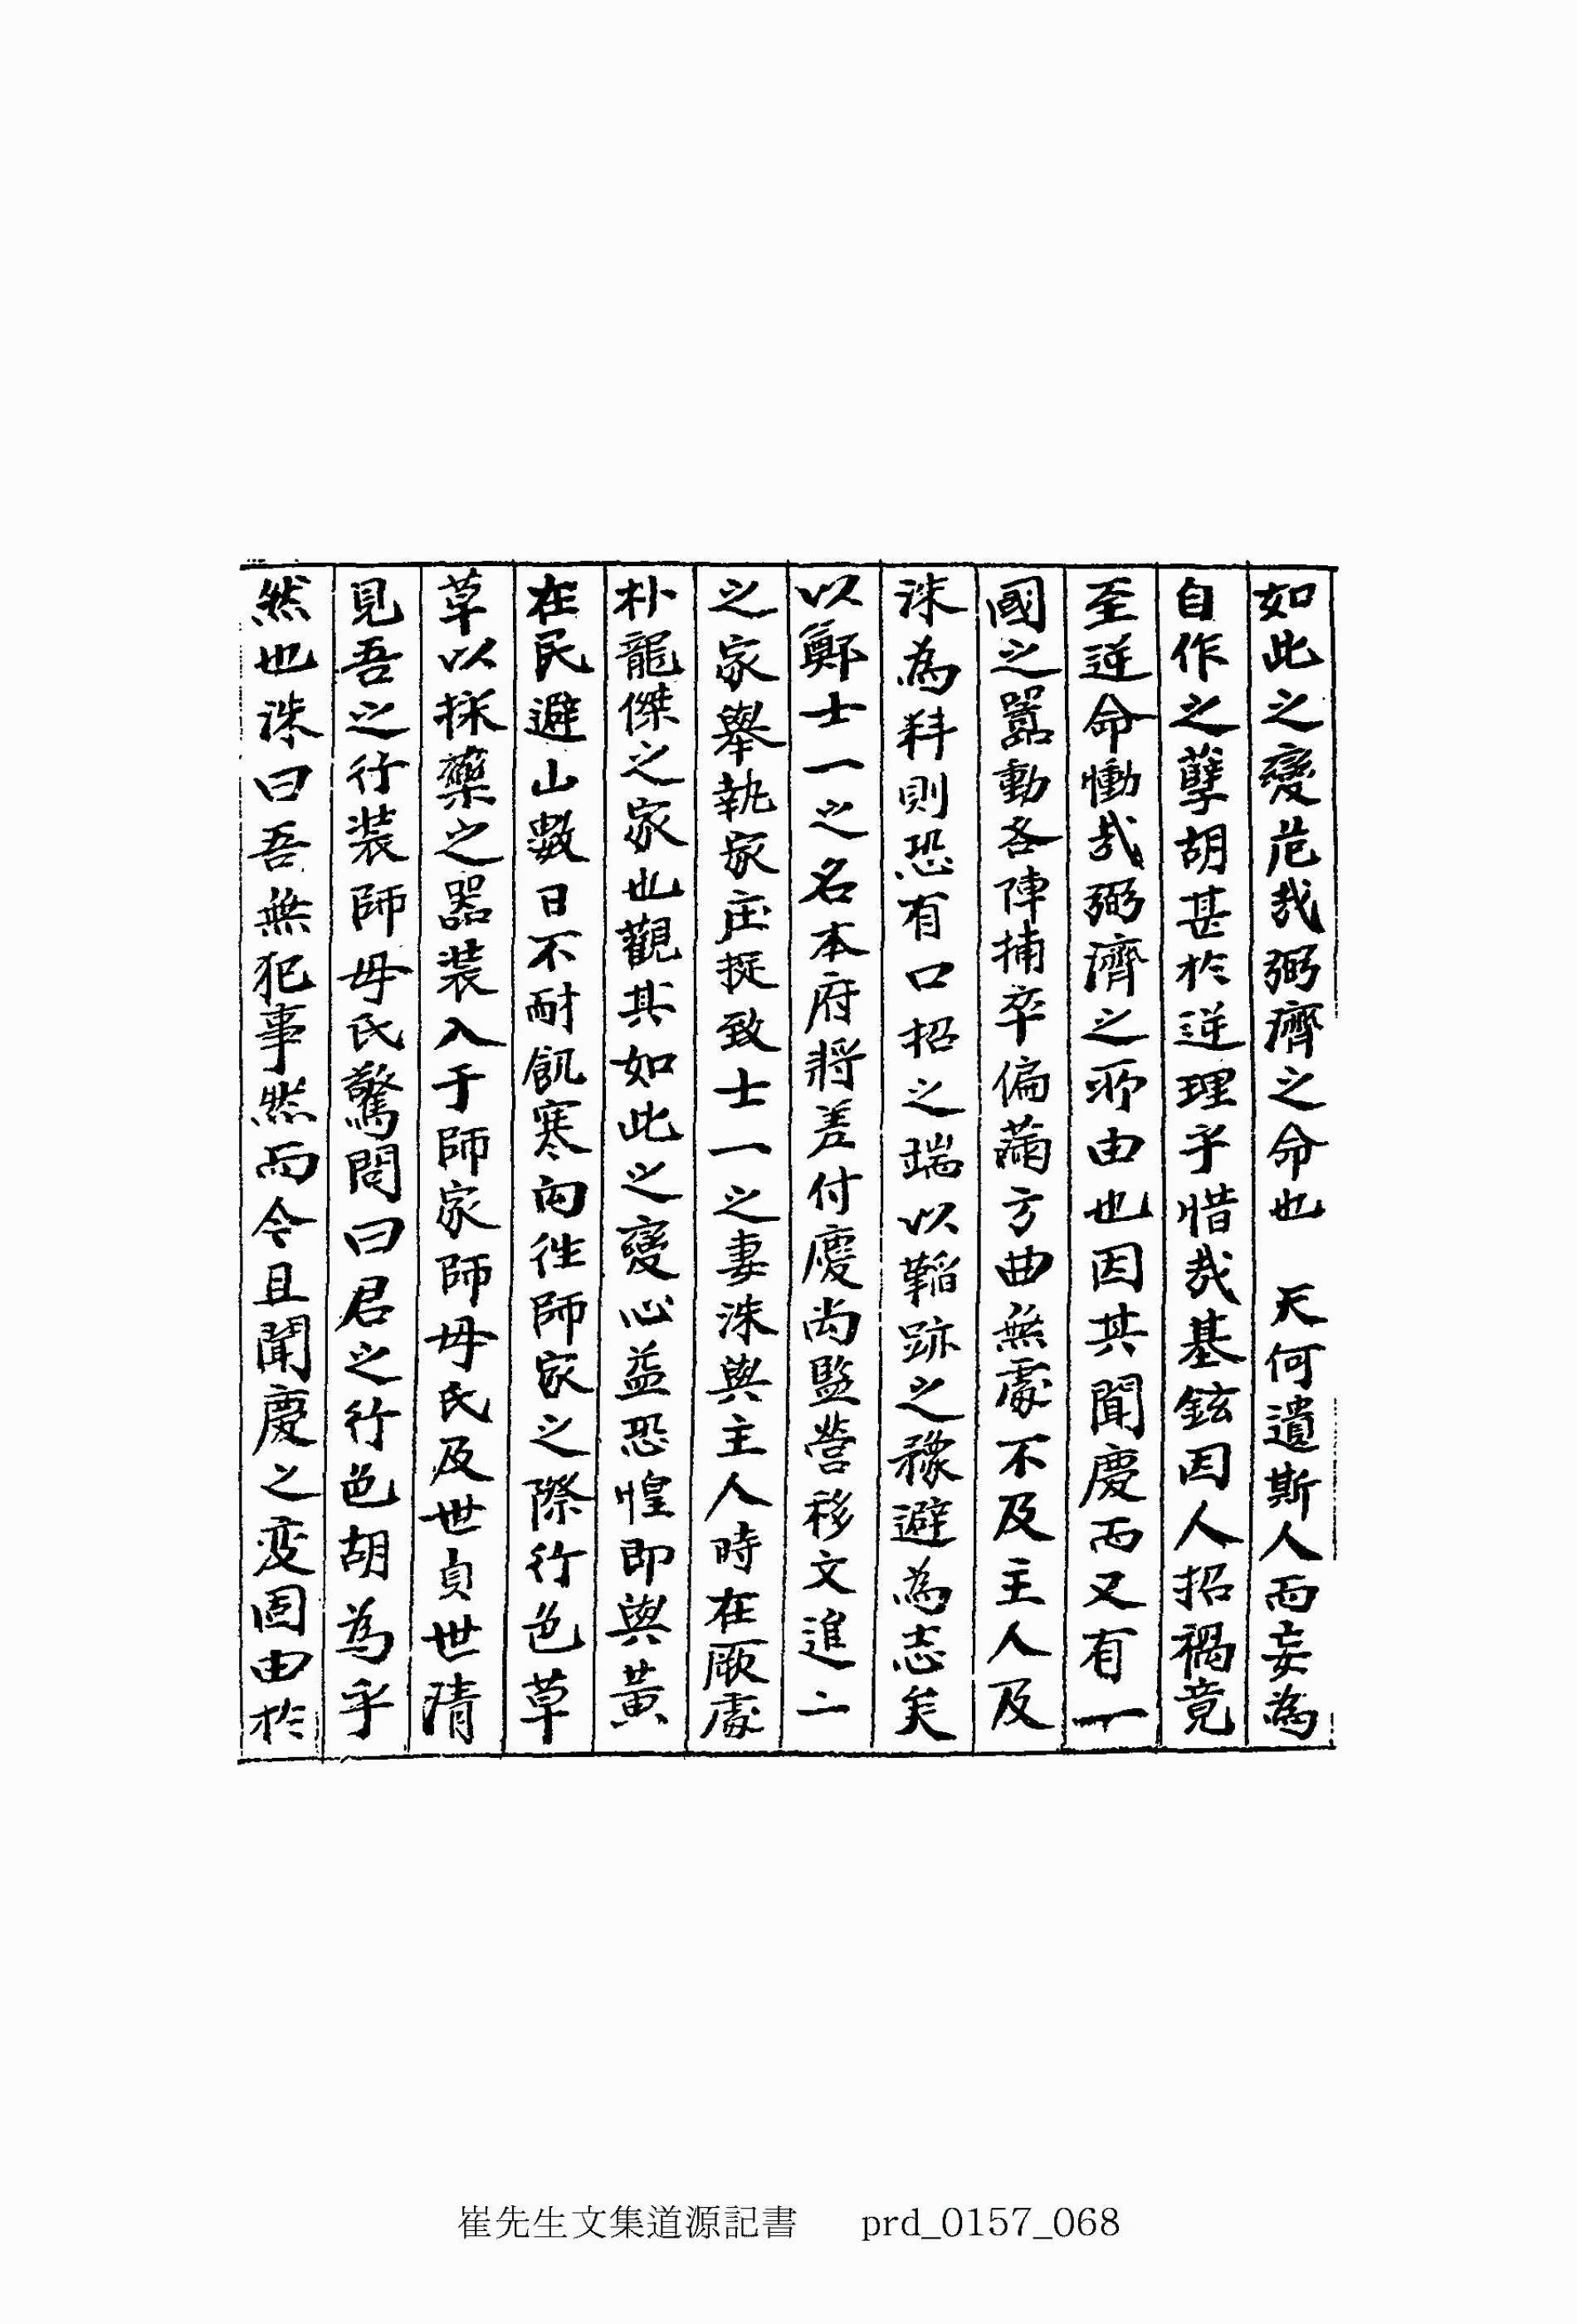 如此之變危哉弼濟之命也　天何遣斯人而妄為
自作之孽胡甚於逆理乎惜哉基鉉因人招禍竟
至逆命慟哉弼濟之所由也因其聞慶而又有一
國之囂動各陣捕卒偏滿方曲無處不及主人及
洙為科則恐有口招之端以韜跡之豫避為志矣
以鄭士一之名本府將差付慶尚監營移文進二
之家舉執家庄捉致士一之妻洙與主人時在厥處
朴龍傑之家也觀其如此之變心益恐惶即與黃
在民避山數日不耐飢寒向徃師家之際行色草
草以採藥之器裝入于師家師母氏及世貞世清
見吾之行裝師母氏驚問曰君之行色胡為乎
然也洙曰吾無犯事然而今且聞慶之変固由於
崔先生文集道源記書　prd_0157_068